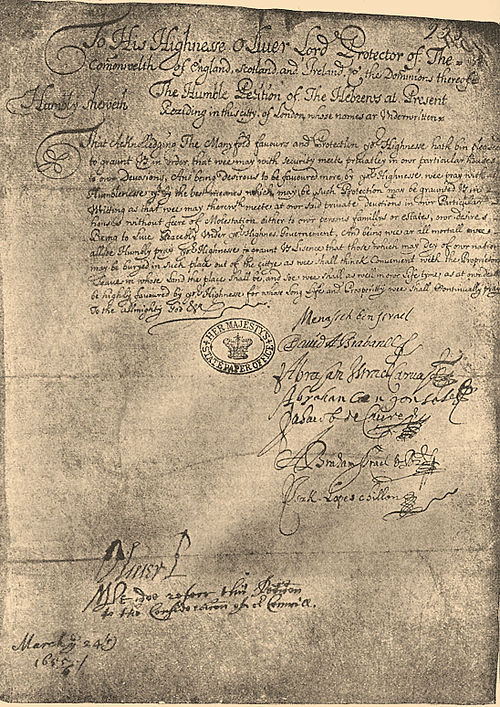 To His Highnesse Oliver Lord Protector of The
Comonwelth of England, Scotland, and Ireland, & the Dominions thereof
The Humble Petition of The Hebrews at Present
Humbly Sheweth
Reziding in this citty of London, whose names ar Underwritten
That Acknolledging The Manyfold favours and Protection yor Highnesse hath bin pleased
to graunt us in order that wee may with security meete privatley in our particular houses
to our Devosions, And being desirous to be favoured more by yor Highnesse wee pray with all
Humblenesse yt by the best meanes which may be Such Protection may be graunted us in
Writting as that wee may therewth meete at our said private devosions in our Particular
houses without feere of Molestation either to our persons famillys or estates, our desires
Being to Live Peacebly Under yor Highnes Governement, And being wee ar all mortall wee
allsoe Humbly pray yor Highnesse to graunt us Lisence that those which may dey of our nation
may be buryed in such place out of the cittye as wee shall thinck Convenient with the Proprietors
Leave in whose Land this place shall be, and soe wee shall as well in our Life tyme, as at our death
be highly favoured by yor Highnesse for whose Long Life and Prosperity wee shall Continually pray
To the allmighty God &c
HER MAJESTY'S STATE PAPER OFFICE
Menasseh ben Israel
David Abrabanell
Abraham Israel Carvajal
Abraham Coen gonzales
Jahacob de Caceres
Abraham Israel
Isak Lopes Chillon
Oliver P
Wee doe referr this Peticon
to the Consideracon of ye Councill.
March ye 24th
1655/6